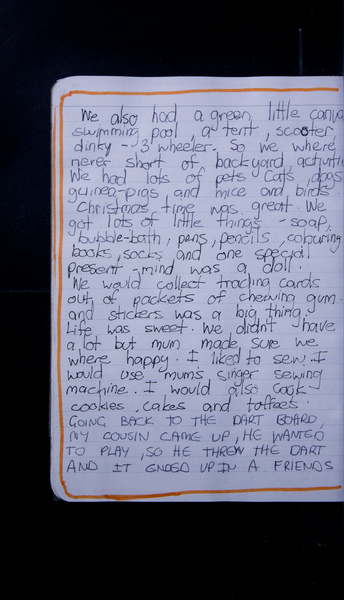 We also had a green little canva
swimming pool, a tent, scooter,
dinky - 3 wheeler. So we where
never short of backyard activitie
We had lots of pets Cats, dogs
guinea-pigs and mice and birds
Christmas time was great. We
got lots of little things - soap,
bubble-bath, pens, pencils, colouring
books, socks and one special
present - mind was a doll.
We would collect trading cards
out of packets of chewing gum.
and stickers was a big thing.
Life was sweet. We didn't have
a lot but mum made sure we
where happy. I liked to sew. I
would use mums singer sewing
machine. I would also cook
cookies, cakes and toffees.
GOING BACK TO THE DART BOARD,
MY COUSIN CAME UP, HE WANTED
TO PLAY, SO HE THREW THE DART
AND IT ENDED UP IN A FRIENDS